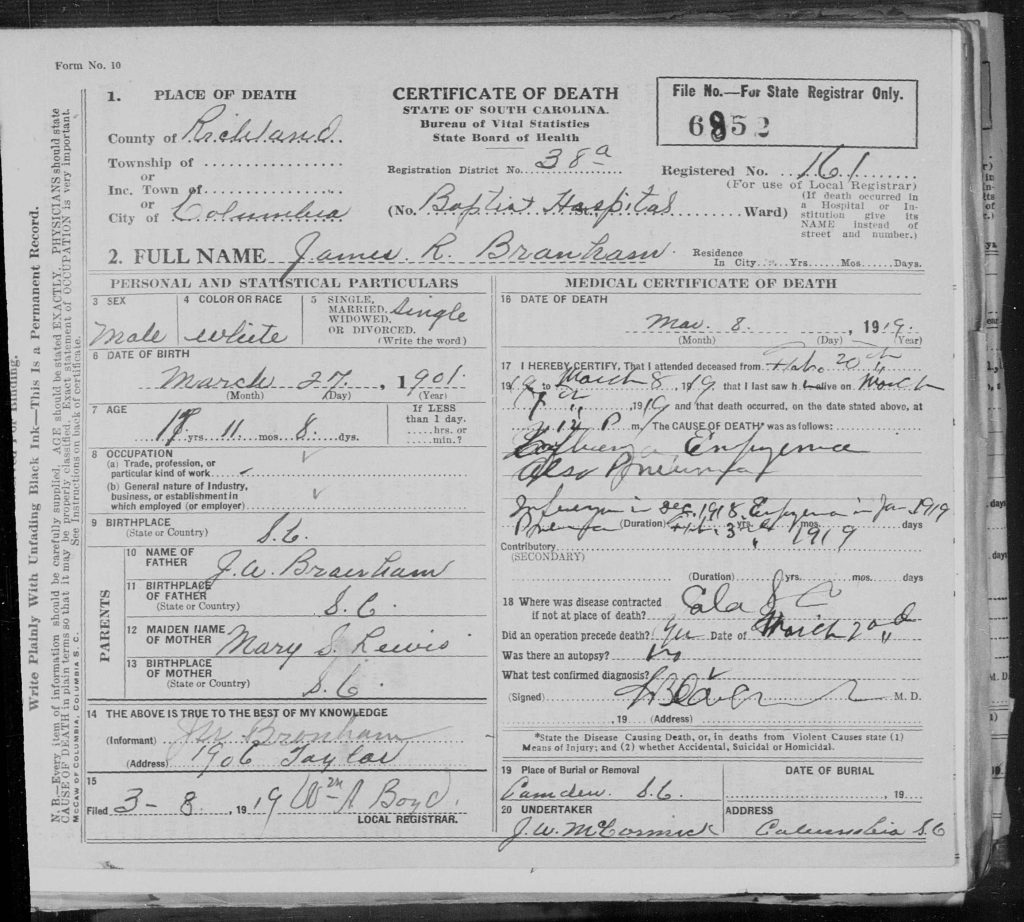 Form No. 10
1. PLACE OF DEATH
County of Richland
Township of
or
Inc. Town of
or
City of Columbia
CERTIFICATE OF DEATH
STATE OF SOUTH CAROLINA.
Bureau of Vital Statistics
State Board of Health
Registration District No. 38a
(No. Baptist Hospital Ward)
File No.—For State Registrar Only.
6852
Registered No. 161
(For use of Local Registrar)
(If death occurred in
a Hospital or In-
stitution give its
NAME instead of
street and number.)
2. FULL NAME James R. Branham
Residence
In City Yrs. Mos. Days.
PERSONAL AND STATISTICAL PARTICULARS
3 SEX
Male
4 COLOR OR RACE
white
5 SINGLE,
MARRIED,
WIDOWED,
OR DIVORCED.
(Write the word)
single
6 DATE OF BIRTH
March 27, 1901.
(Month) (Day) (Year)
7 AGE
yrs. 11 mos. 8 dys.
If LESS
than 1 day.
hrs. or
min.?
8 OCCUPATION
(a) Trade, profession, or
particular kind of work
(b) General nature of Industry,
business, or establishment in
which employed (or employer)
9 BIRTHPLACE
(State or Country) S.C.
PARENTS
10 NAME OF
FATHER J.W. Branham
11 BIRTHPLACE
OF FATHER
(State or Country) S.C.
12 MAIDEN NAME
OF MOTHER Mary S. Lewis
13 BIRTHPLACE
OF MOTHER
(State or Country) S.C.
14 THE ABOVE IS TRUE TO THE BEST OF MY KNOWLEDGE
(Informant) Branham
(Address) 1906 Taylor
15
Filed 3-8, 1919 Wm A Boyd.
LOCAL REGISTRAR.
MEDICAL CERTIFICATE OF DEATH
16 DATE OF DEATH
Mar. 8, 1919.
(Month) (Day) (Year)
17 I HEREBY CERTIFY, That I attended deceased from Feb. 20th
1919 to March 8, 1919 that I last saw h alive on March
1919 and that death occurred, on the date stated above, at
P m. The CAUSE OF DEATH* was as follows:
Influenza Empyema
also Pneumonia
in Dec. 1918. Empyema in Jan 1919
(Duration) Feb. yrs. mos. 1919 days
Contributory
(SECONDARY)
(Duration) yrs. mos. days
18 Where was disease contracted
if not at place of death? Cola S C
Did an operation precede death? yes Date of March 2nd
Was there an autopsy? No
What test confirmed diagnosis?
(Signed) M. D.
, 19 (Address)
*State the Disease Causing Death, or, in deaths from Violent Causes state (1)
Means of Injury; and (2) whether Accidental, Suicidal or Homicidal.
19 Place of Burial or Removal
Camden S.C.
DATE OF BURIAL
, 19
20 UNDERTAKER
J.W. McCormick
ADDRESS
Columbia S.C
Write Plainly With Unfading Black Ink—This Is a Permanent Record.
N. B.—Every item of information should be carefully supplied. AGE should be stated EXACTLY. PHYSICIANS should state
CAUSE OF DEATH in plain terms so that it may be properly classified. Exact statement of OCCUPATION is very important.
See Instructions on back of certificate.
MCCAW OF COLUMBIA, COLUMBIA S. C.